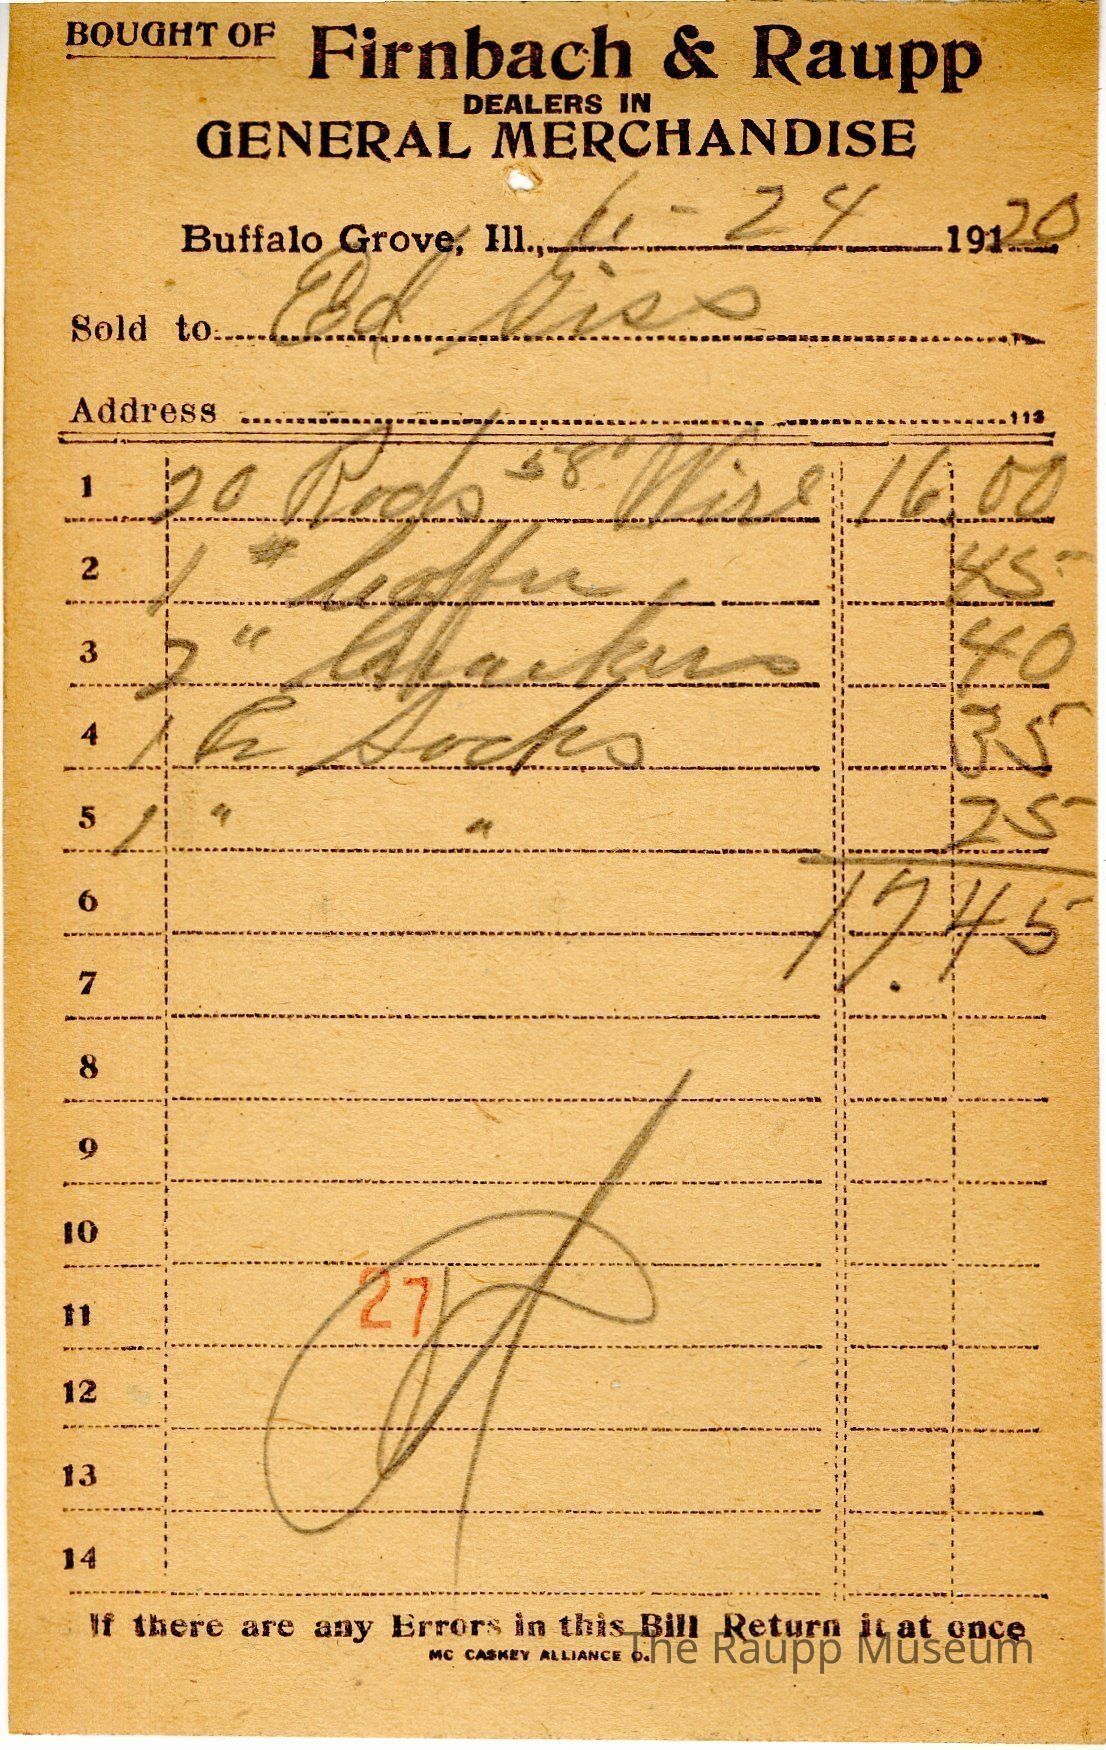 BOUGHT OF Firnbach & Raupp
DEALERS IN
GENERAL MERCHANDISE
Buffalo Grove, Ill., 11-24 191 20
Sold to Ed Giss
Address
113
1 20 Rods 58" Wire 16.00
2 1 # Coffee 45
3 2 " Crackers 40
4 1 Pr Socks 35
5 1 " " 25
6 17.45
7
8
9
10
27
11
12
13
14
If there are any Errors in this Bill Return it at once
MC CASKEY ALLIANCE O.
The Raupp Museum